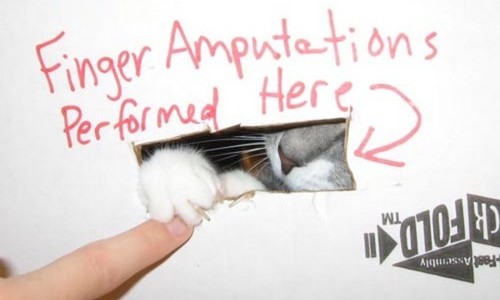 Finger Amputations
Performed Here
FOLD™
Fast Assembly